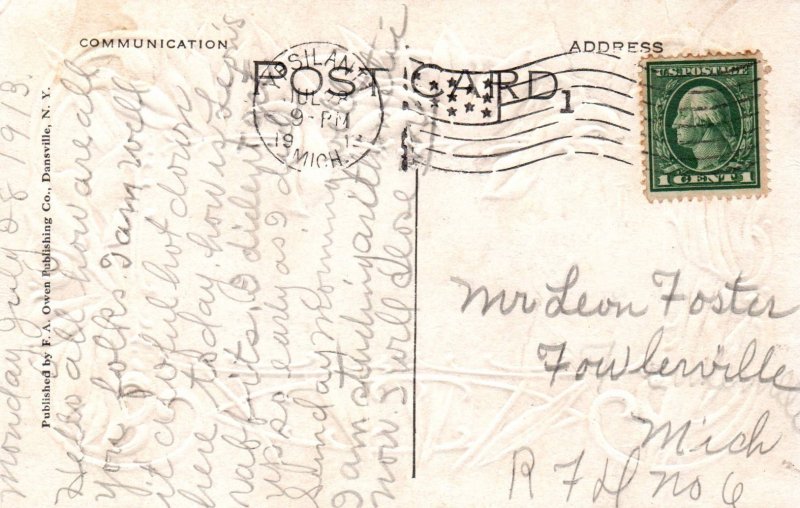 COMMUNICATION
ADDRESS
POST CARD
YPSILANTI
JUL
9-PM
1913
MICH.
1
U.S. POSTAGE
1 CENT 1
Published by F. A. Owen Publishing Co., Dansville, N. Y.
Monday July 28 1913.
Hello all how are all
you folks. I am well
it is awful hot down
here today. how is Leon's
rabbits. I didn't get
up so early as I did
Sunday morning
I am studying
now I will close
Mr Leon Foster
Fowlerville
Mich
R F D No 6